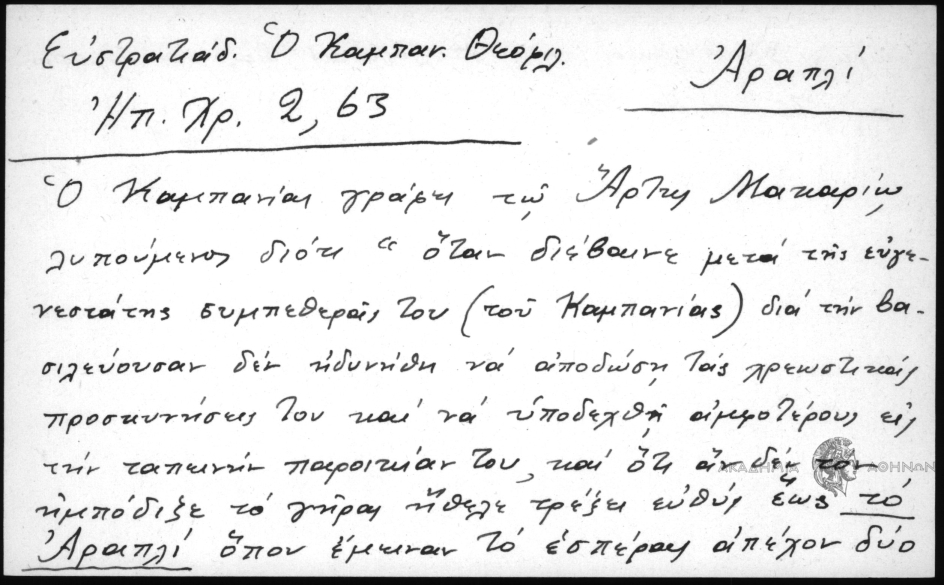 Εὐστρατιάδ. Ὁ Καμπαν. Θεόφιλ.
Ἀραπλί
Ἠπ. Χρ. 2, 63
Ὁ Καμπανίας γράφει τῷ Ἄρτης Μακαρίῳ
λυπούμενος διότι "ὅταν διέβαινε μετά τῆς εὐγε-
νεστάτης συμπεθερᾶς του (τοῦ Καμπανίας) διά τήν βα-
σιλεύουσαν δέν ἠδυνήθη νά ἀποδώσῃ τάς χρεωστικάς
προσκυνήσεις του καί νά ὑποδεχθῇ ἀμφοτέρους εἰς
τήν ταπεινήν παροικίαν του, καί ὅτι ἄν δέν τον
ΑΚΑΔΗΜΙΑ ΑΘΗΝΩΝ
ἠμπόδιζε τό γῆρας ἤθελε τρέξει εὐθύς ἕως τό
Ἀραπλί ὅπου ἔμειναν τό ἑσπέρας ἀπέχον δύο